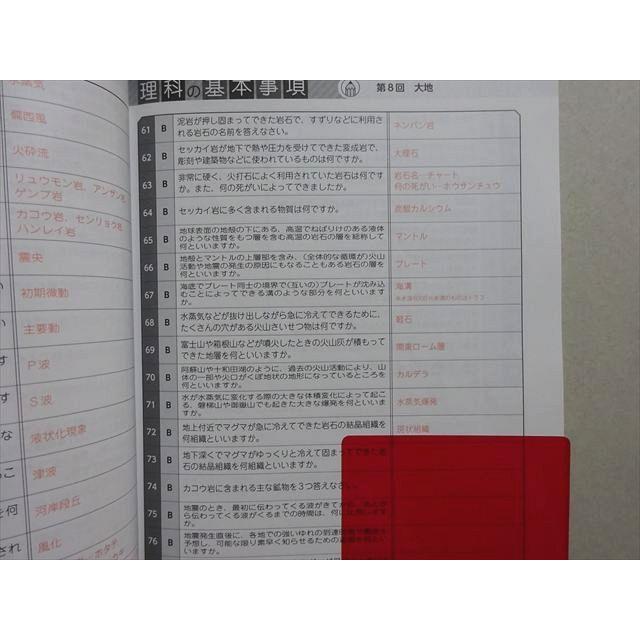 理科の基本事項
第8回 大地
水蒸気
偏西風
火砕流
リュウモン岩、アンザン
ゲンブ岩
カコウ岩、センリョウ
ハンレイ岩
震央
初期微動
主要動
P波
S波
液状化現象
津波
河岸段丘
風化
61 B 泥岩が押し固まってできた岩石で、すずりなどに利用さ
れる岩石の名前を答えなさい。
ネンバン岩
62 B セッカイ岩が地下で熱や圧力を受けてできた変成岩で、
彫刻や建築物などに使われているものは何ですか。
大理石
63 B 非常に硬く、火打石によく利用されていた岩石は何です
か。また、何の死がいによってできましたか。
岩石名…チャート
何の死がい…ホウサンチュウ
64 B セッカイ岩に多く含まれる物質は何ですか。
炭酸カルシウム
65 B 地球表面の地殻の下にある、高温でねばりけのある液体
のような性質をもつ層を含む高温の岩石の層を総称して
何といいますか。
マントル
66 B 地殻とマントルの上層部を含み、(全体的な循環が)火山
活動や地震の発生の原因にもなることもある岩石の層を
何といいますか。
プレート
67 B 海底でプレート同士の境界で(互いの)プレートが沈み込
むことによってできる溝のような部分を何といいます
か。
海溝
68 B 水蒸気などが抜け出しながら急に冷えてできるために、
たくさんの穴がある火山さいせつ物は何ですか。
軽石
69 B 富士山や箱根山などが噴火したときの火山灰が積もって
できた地層を何といいますか。
関東ローム層
70 B 阿蘇山や十和田湖のように、過去の火山活動により、山
体の一部や火口がくぼ地状の地形になっているところを
何といいますか。
カルデラ
71 B 水が水蒸気に変化する際の大きな体積変化によって起こ
る、磐梯山や御嶽山でも起きた大きな爆発を何といいま
すか。
水蒸気爆発
72 B 地上付近でマグマが急に冷えてできた岩石の結晶組織を
何組織といいますか。
斑状組織
73 B 地下深くでマグマがゆっくりと冷えて固まってできた岩
石の結晶組織を何組織といいますか。
74 B カコウ岩に含まれる主な鉱物を3つ答えなさい。
75 B 地震のとき、最初に伝わってくる波がきてから、あとか
ら伝わってくる波がくるまでの時間は、何に比例します
76 B 地震発生直後に、各地での強いゆれの到達
予想し、可能な限り素早く知らせるための
いますか。